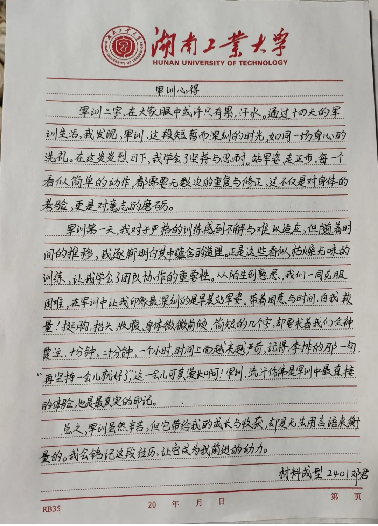 湖南工业大学
HUNAN UNIVERSITY OF TECHNOLOGY
军训心得
军训二字,在大家眼中或许只有累,汗水。通过十四天的军
训生活,我发现,军训,这段短暂而深刻的时光,如同一场身心的
洗礼。在这炎炎烈日下,我学会了坚持与忍耐。站军姿,走正步,每一个
看似简单的动作,都需要无数次的重复与修正,这不仅是对身体的
考验,更是对意志的磨砺。
军训第一天,我对于严格的训练感到不解与难以适应,但随着时
间的推移,我逐渐明白其中蕴含的道理。正是这些看似枯燥无味的
训练,让我学会了团队协作的重要性。从陌生到熟悉,我们一同克服
困难,在军训中让我印象最深刻的是早晨站军姿,带着困意与时间,自我较
量!挺胸,抬头,收腹,身体微微前倾,简短的几个字,却要求着我们全神
贯注,十分钟、二十分钟、一个小时,时间上面越来越严苛,记得,李排的那一句
“再坚持一会儿就好了”这一会儿可真漫长啊!军训,流汗仿佛是军训中最直接
的体验,也是最真实的印记。
总之,军训虽然辛苦,但它带给我的成长与收获,却是无法用言语来衡
量的。我会铭记这段经历,让它成为我前进的动力。
材料成型 2401 邓君
RB35 20 年 月 日 第 页